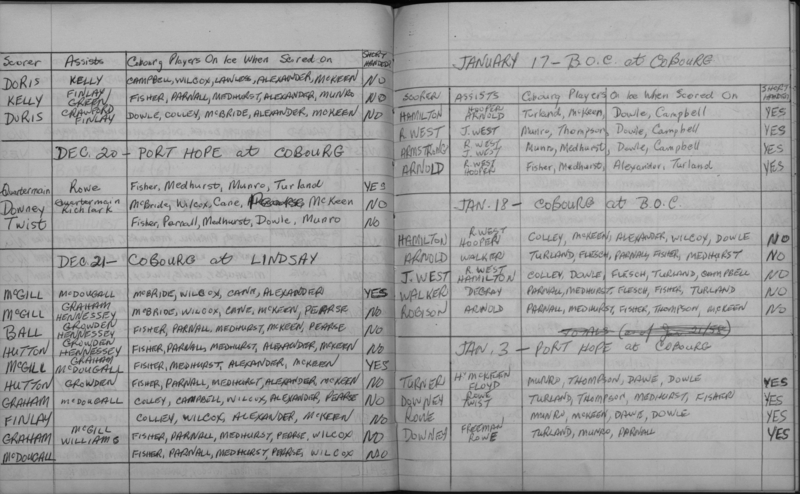 Scorer Assists Cobourg Players On Ice When Scored On SHORT HANDED
DORIS KELLY CAMPBELL, WILCOX, LAWLESS, ALEXANDER, McKEEN NO
KELLY FINLAY GREEN FISHER, PARNALL, MEDHURST, ALEXANDER, MUNRO NO
DORIS CRAWFORD FINLAY DOWLE, COLLEY, McBRIDE, ALEXANDER, McKEEN NO
DEC. 20 - PORT HOPE at COBOURG
Quartermain Rowe Fisher, Medhurst, Munro, Turland YES
Downey Quartermain Richlark McBride, Wilcox, Cane, McKeen NO
Twist Fisher, Parnall, Medhurst, Dowle, Munro NO
DEC. 21 - COBOURG at LINDSAY
McGILL McDOUGALL McBRIDE, WILCOX, CANE, ALEXANDER YES
McGILL GRAHAM HENNESSEY McBRIDE, WILCOX, CANE, McKEEN, PEARSE NO
BALL GROWDEN HENNESSEY FISHER, PARNALL, MEDHURST, McKEEN, PEARSE NO
HUTTON GROWDEN HENNESSEY FISHER, PARNALL, MEDHURST, ALEXANDER, McKEEN NO
McGILL GRAHAM McDOUGALL FISHER, MEDHURST, ALEXANDER, McKEEN YES
HUTTON GROWDEN FISHER, PARNALL, MEDHURST, ALEXANDER, McKEEN NO
GRAHAM McDOUGALL COLLEY, CAMPBELL, WILCOX, ALEXANDER, PEARSE NO
FINLAY COLLEY, WILCOX, ALEXANDER, McKEEN NO
GRAHAM McGILL WILLIAMS FISHER, PARNALL, MEDHURST, PEARSE, WILCOX NO
McDOUGALL FISHER, PARNALL, MEDHURST, PEARSE, WILCOX NO
JANUARY 17 - B.O.C. at COBOURG
SCORER ASSISTS Cobourg Players On Ice When Scored On SHORT HANDED
HAMILTON HOOPER ARNOLD Turland, McKeen, Dowle, Campbell YES
R WEST J. WEST Munro, Thompson, Dowle, Campbell YES
ARMSTRONG R. WEST J. WEST Munro, Medhurst, Dowle, Campbell YES
ARNOLD R. WEST HOOPER Fisher, Medhurst, Alexander, Turland YES
JAN. 18 - COBOURG at B.O.C.
HAMILTON R WEST HOOPER COLLEY, McKEEN, ALEXANDER, WILCOX, DOWLE NO
ARNOLD WALKER TURLAND, FLESCH, PARNALL, FISHER, MEDHURST NO
J. WEST R. WEST HAMILTON COLLEY, DOWLE, FLESCH, TURLAND, CAMPBELL NO
WALKER DEGRAY PARNALL, MEDHURST, FLESCH, FISHER, TURLAND NO
ROBISON ARNOLD PARNALL, MEDHURST, FISHER, THOMPSON, McKEEN NO
TOTALS (as of Jan 21/58)
JAN. 3 - PORT HOPE at COBOURG
TURNER H. McKEEN FLOYD MUNRO, THOMPSON, DAWE, DOWLE YES
DOWNEY ROWE TWIST TURLAND, THOMPSON, MEDHURST, FISHER YES
ROWE MUNRO, McKEEN, DAWE, DOWLE YES
DOWNEY FREEMAN ROWE TURLAND, MUNRO, PARNALL YES